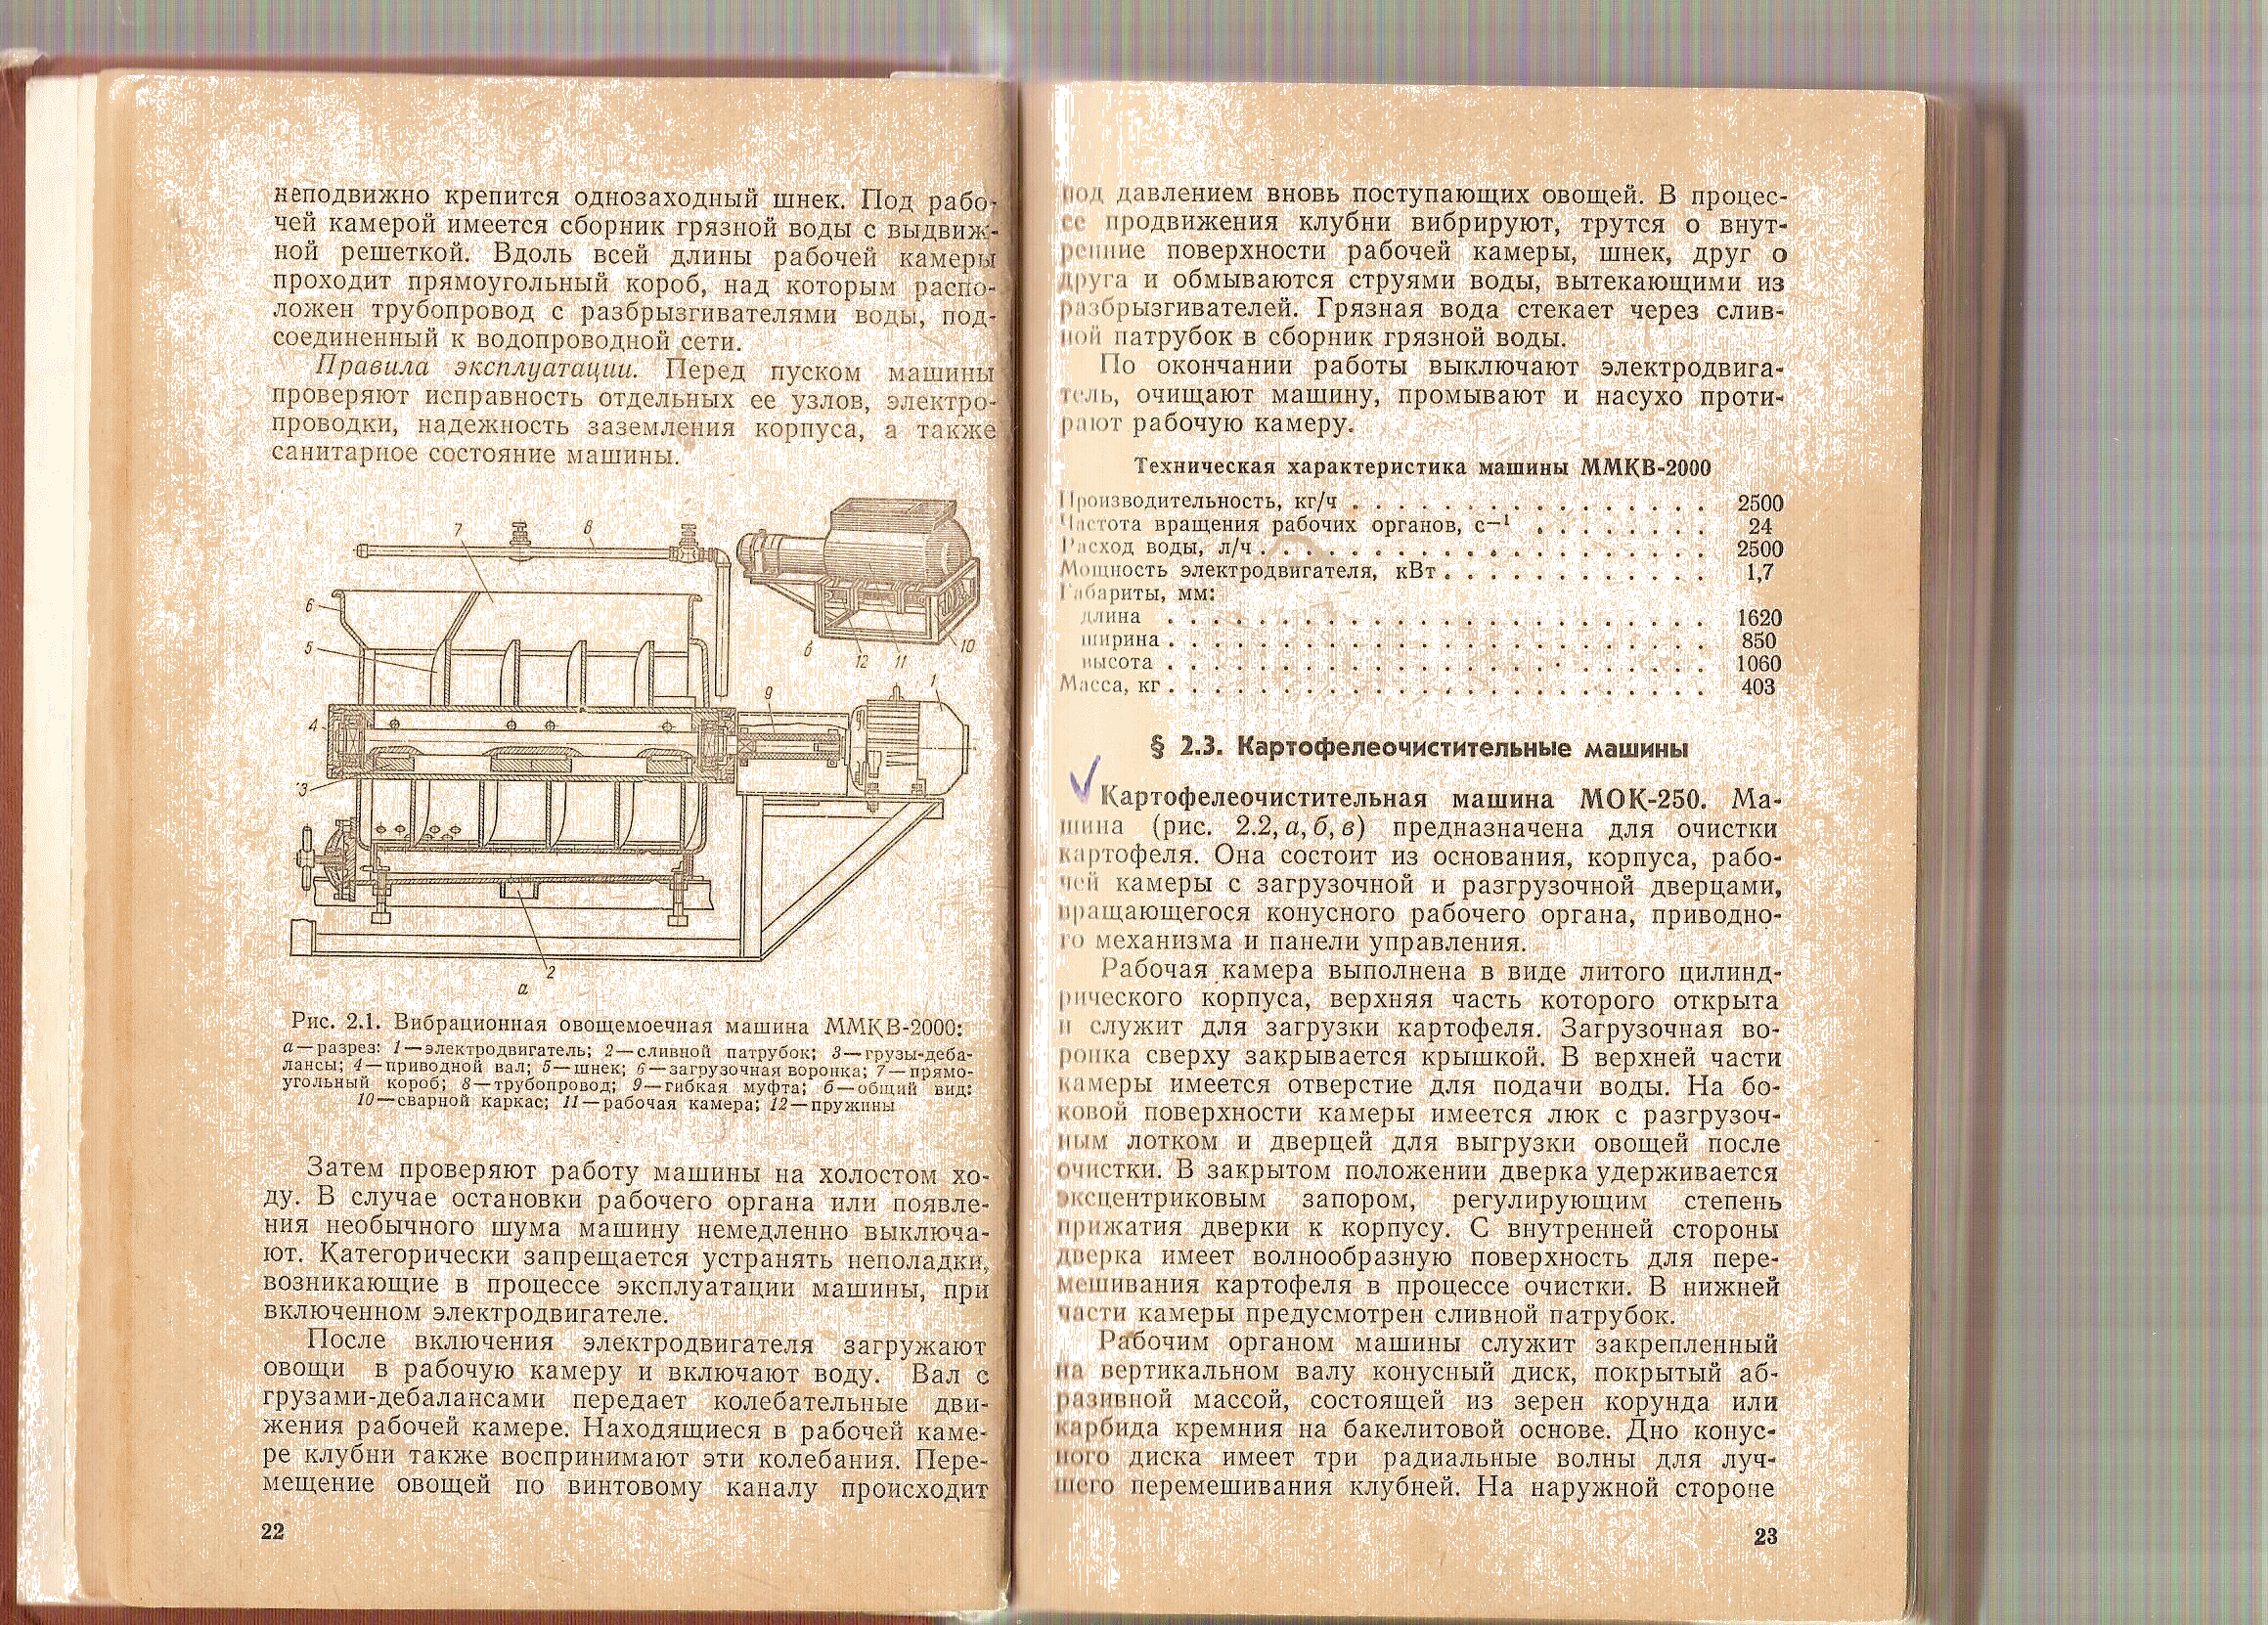 неподвижно крепится однозаходный шнек. Под рабо-
чей камерой имеется сборник грязной воды с выдвиж-
ной решеткой. Вдоль всей длины рабочей камеры
проходит прямоугольный короб, над которым распо-
ложен трубопровод с разбрызгивателями воды, под-
соединенный к водопроводной сети.
Правила эксплуатации. Перед пуском машины
проверяют исправность отдельных ее узлов, электро-
проводки, надежность заземления корпуса, а также
санитарное состояние машины.
7
8
6
5
4
3
9
1
2
а
б
12
11
10
Рис. 2.1. Вибрационная овощемоечная машина ММКВ-2000:
а — разрез: 1 — электродвигатель; 2 — сливной патрубок; 3 — грузы-деба-
лансы; 4 — приводной вал; 5 — шнек; 6 — загрузочная воронка; 7 — прямо-
угольный короб; 8 — трубопровод; 9 — гибкая муфта; б — общий вид:
10 — сварной каркас; 11 — рабочая камера; 12 — пружины
Затем проверяют работу машины на холостом хо-
ду. В случае остановки рабочего органа или появле-
ния необычного шума машину немедленно выключа-
ют. Категорически запрещается устранять неполадки,
возникающие в процессе эксплуатации машины, при
включенном электродвигателе.
После включения электродвигателя загружают
овощи в рабочую камеру и включают воду. Вал с
грузами-дебалансами передает колебательные дви-
жения рабочей камере. Находящиеся в рабочей каме-
ре клубни также воспринимают эти колебания. Пере-
мещение овощей по винтовому каналу происходит
22
под давлением вновь поступающих овощей. В процес-
се продвижения клубни вибрируют, трутся о внут-
ренние поверхности рабочей камеры, шнек, друг о
друга и обмываются струями воды, вытекающими из
разбрызгивателей. Грязная вода стекает через слив-
ной патрубок в сборник грязной воды.
По окончании работы выключают электродвига-
тель, очищают машину, промывают и насухо проти-
рают рабочую камеру.
Техническая характеристика машины ММКВ-2000
Производительность, кг/ч . . . . . . . . . . . . . . . . 2500
Частота вращения рабочих органов, с—1 . . . . . . . . 24
Расход воды, л/ч . . . . . . . . . . . . . . . . . . . . 2500
Мощность электродвигателя, кВт . . . . . . . . . . . . 1,7
Габариты, мм:
длина . . . . . . . . . . . . . . . . . . . . . . . . 1620
ширина . . . . . . . . . . . . . . . . . . . . . . . . 850
высота . . . . . . . . . . . . . . . . . . . . . . . . 1060
Масса, кг . . . . . . . . . . . . . . . . . . . . . . . . 403
§ 2.3. Картофелеочистительные машины
Картофелеочистительная машина МОК-250. Ма-
шина (рис. 2.2, а, б, в) предназначена для очистки
картофеля. Она состоит из основания, корпуса, рабо-
чей камеры с загрузочной и разгрузочной дверцами,
вращающегося конусного рабочего органа, приводно-
го механизма и панели управления.
Рабочая камера выполнена в виде литого цилинд-
рического корпуса, верхняя часть которого открыта
и служит для загрузки картофеля. Загрузочная во-
ронка сверху закрывается крышкой. В верхней части
камеры имеется отверстие для подачи воды. На бо-
ковой поверхности камеры имеется люк с разгрузоч-
ным лотком и дверцей для выгрузки овощей после
очистки. В закрытом положении дверка удерживается
эксцентриковым запором, регулирующим степень
прижатия дверки к корпусу. С внутренней стороны
дверка имеет волнообразную поверхность для пере-
мешивания картофеля в процессе очистки. В нижней
части камеры предусмотрен сливной патрубок.
Рабочим органом машины служит закрепленный
на вертикальном валу конусный диск, покрытый аб-
разивной массой, состоящей из зерен корунда или
карбида кремния на бакелитовой основе. Дно конус-
ного диска имеет три радиальные волны для луч-
шего перемешивания клубней. На наружной стороне
23